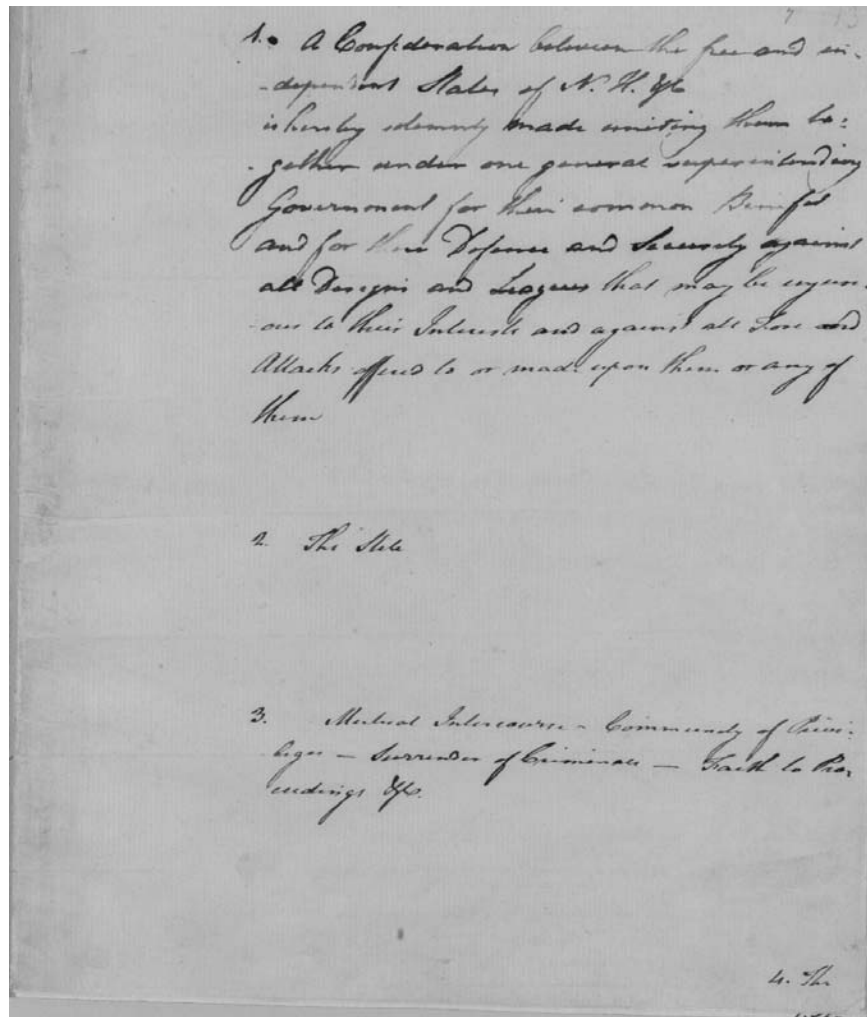 7 13
1. A Confederation between the free and in-
-dependent States of N. H. &c
is hereby solemnly made uniting them to-
-gether under one general superintending
Government for their common Benefit
and for their Defence and Security against
all Designs and Leagues that may be injuri-
ous to their Interests and against all Force and
Attacks offered to or made upon them or any of
them
2. The Stile
3. Mutual Intercourse - Community of Privi-
leges - Surrender of Criminals - Faith to Pro-
ceedings &c.
4. The